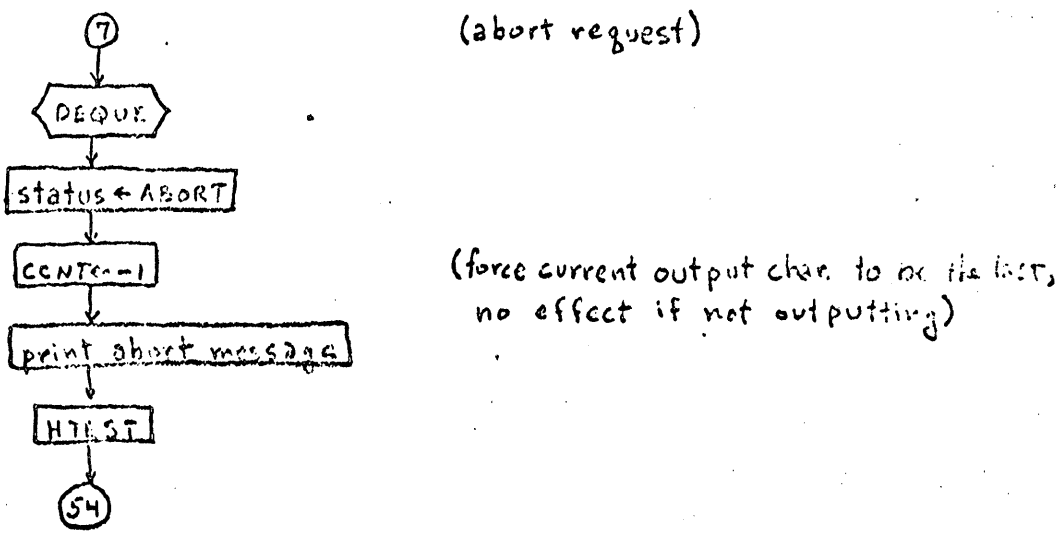 7
(abort request)
DEQUE
status ← ABORT
CCNT ← -1
(force current output char. to be the last,
no effect if not outputting)
print abort message
HTEST
54